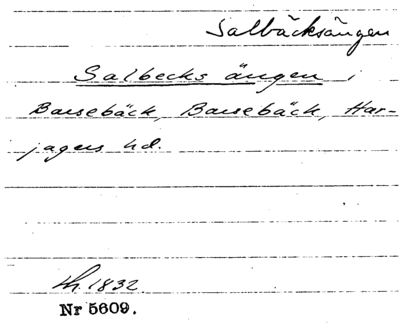 Salbäcksängen
Salbecks ängen i
Barsebäck, Barsebäck, Har-
jagers hd.
1832
Nr 5609.